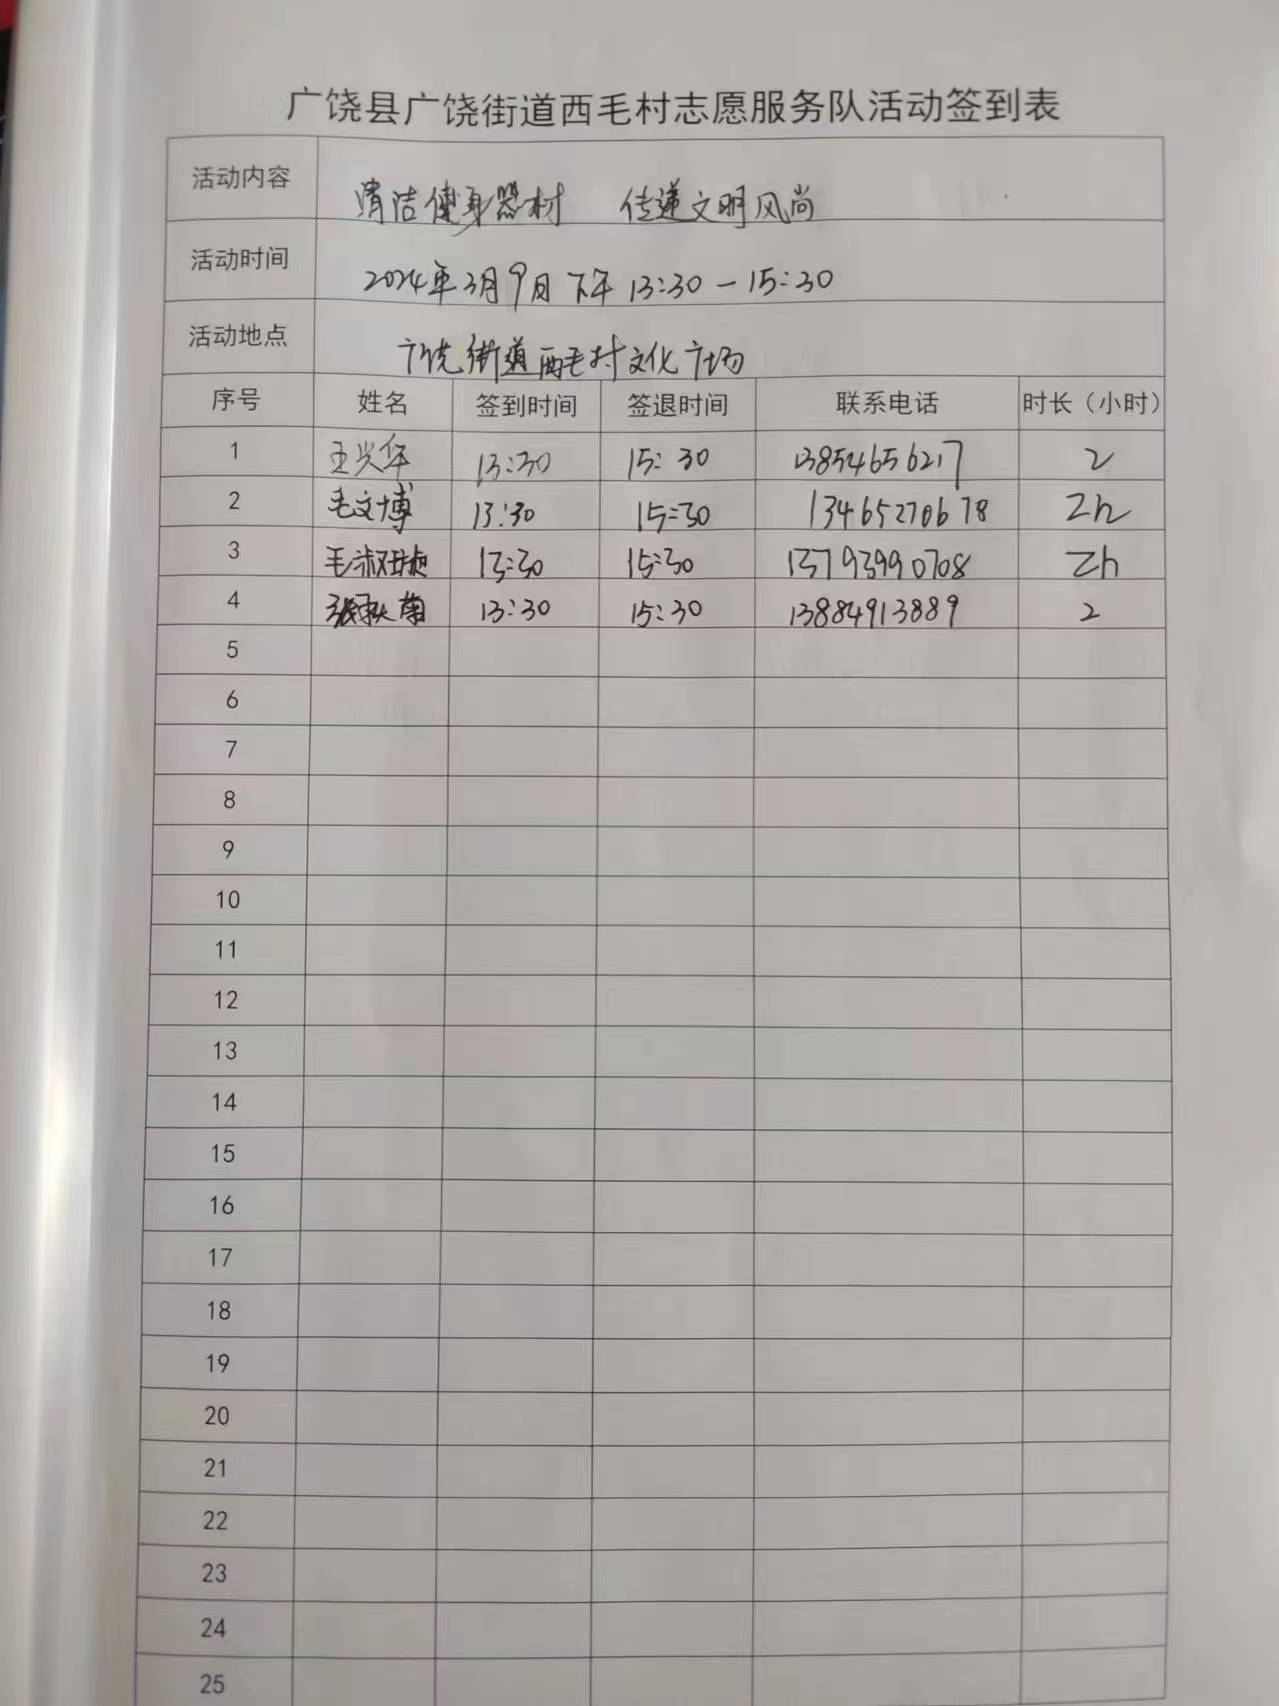 广饶县广饶街道西毛村志愿服务队活动签到表
活动内容 清洁健身器材 传递文明风尚
活动时间 2024年3月9日下午13:30-15:30
活动地点 广饶街道西毛村文化广场
序号 姓名 签到时间 签退时间 联系电话 时长（小时）
1 王兴华 13:30 15:30 13854656217 2
2 毛文博 13:30 15:30 13465270678 2h
3 毛淑 13:30 15:30 13793990708 2h
4 张秋菊 13:30 15:30 13884913889 2
5
6
7
8
9
10
11
12
13
14
15
16
17
18
19
20
21
22
23
24
25